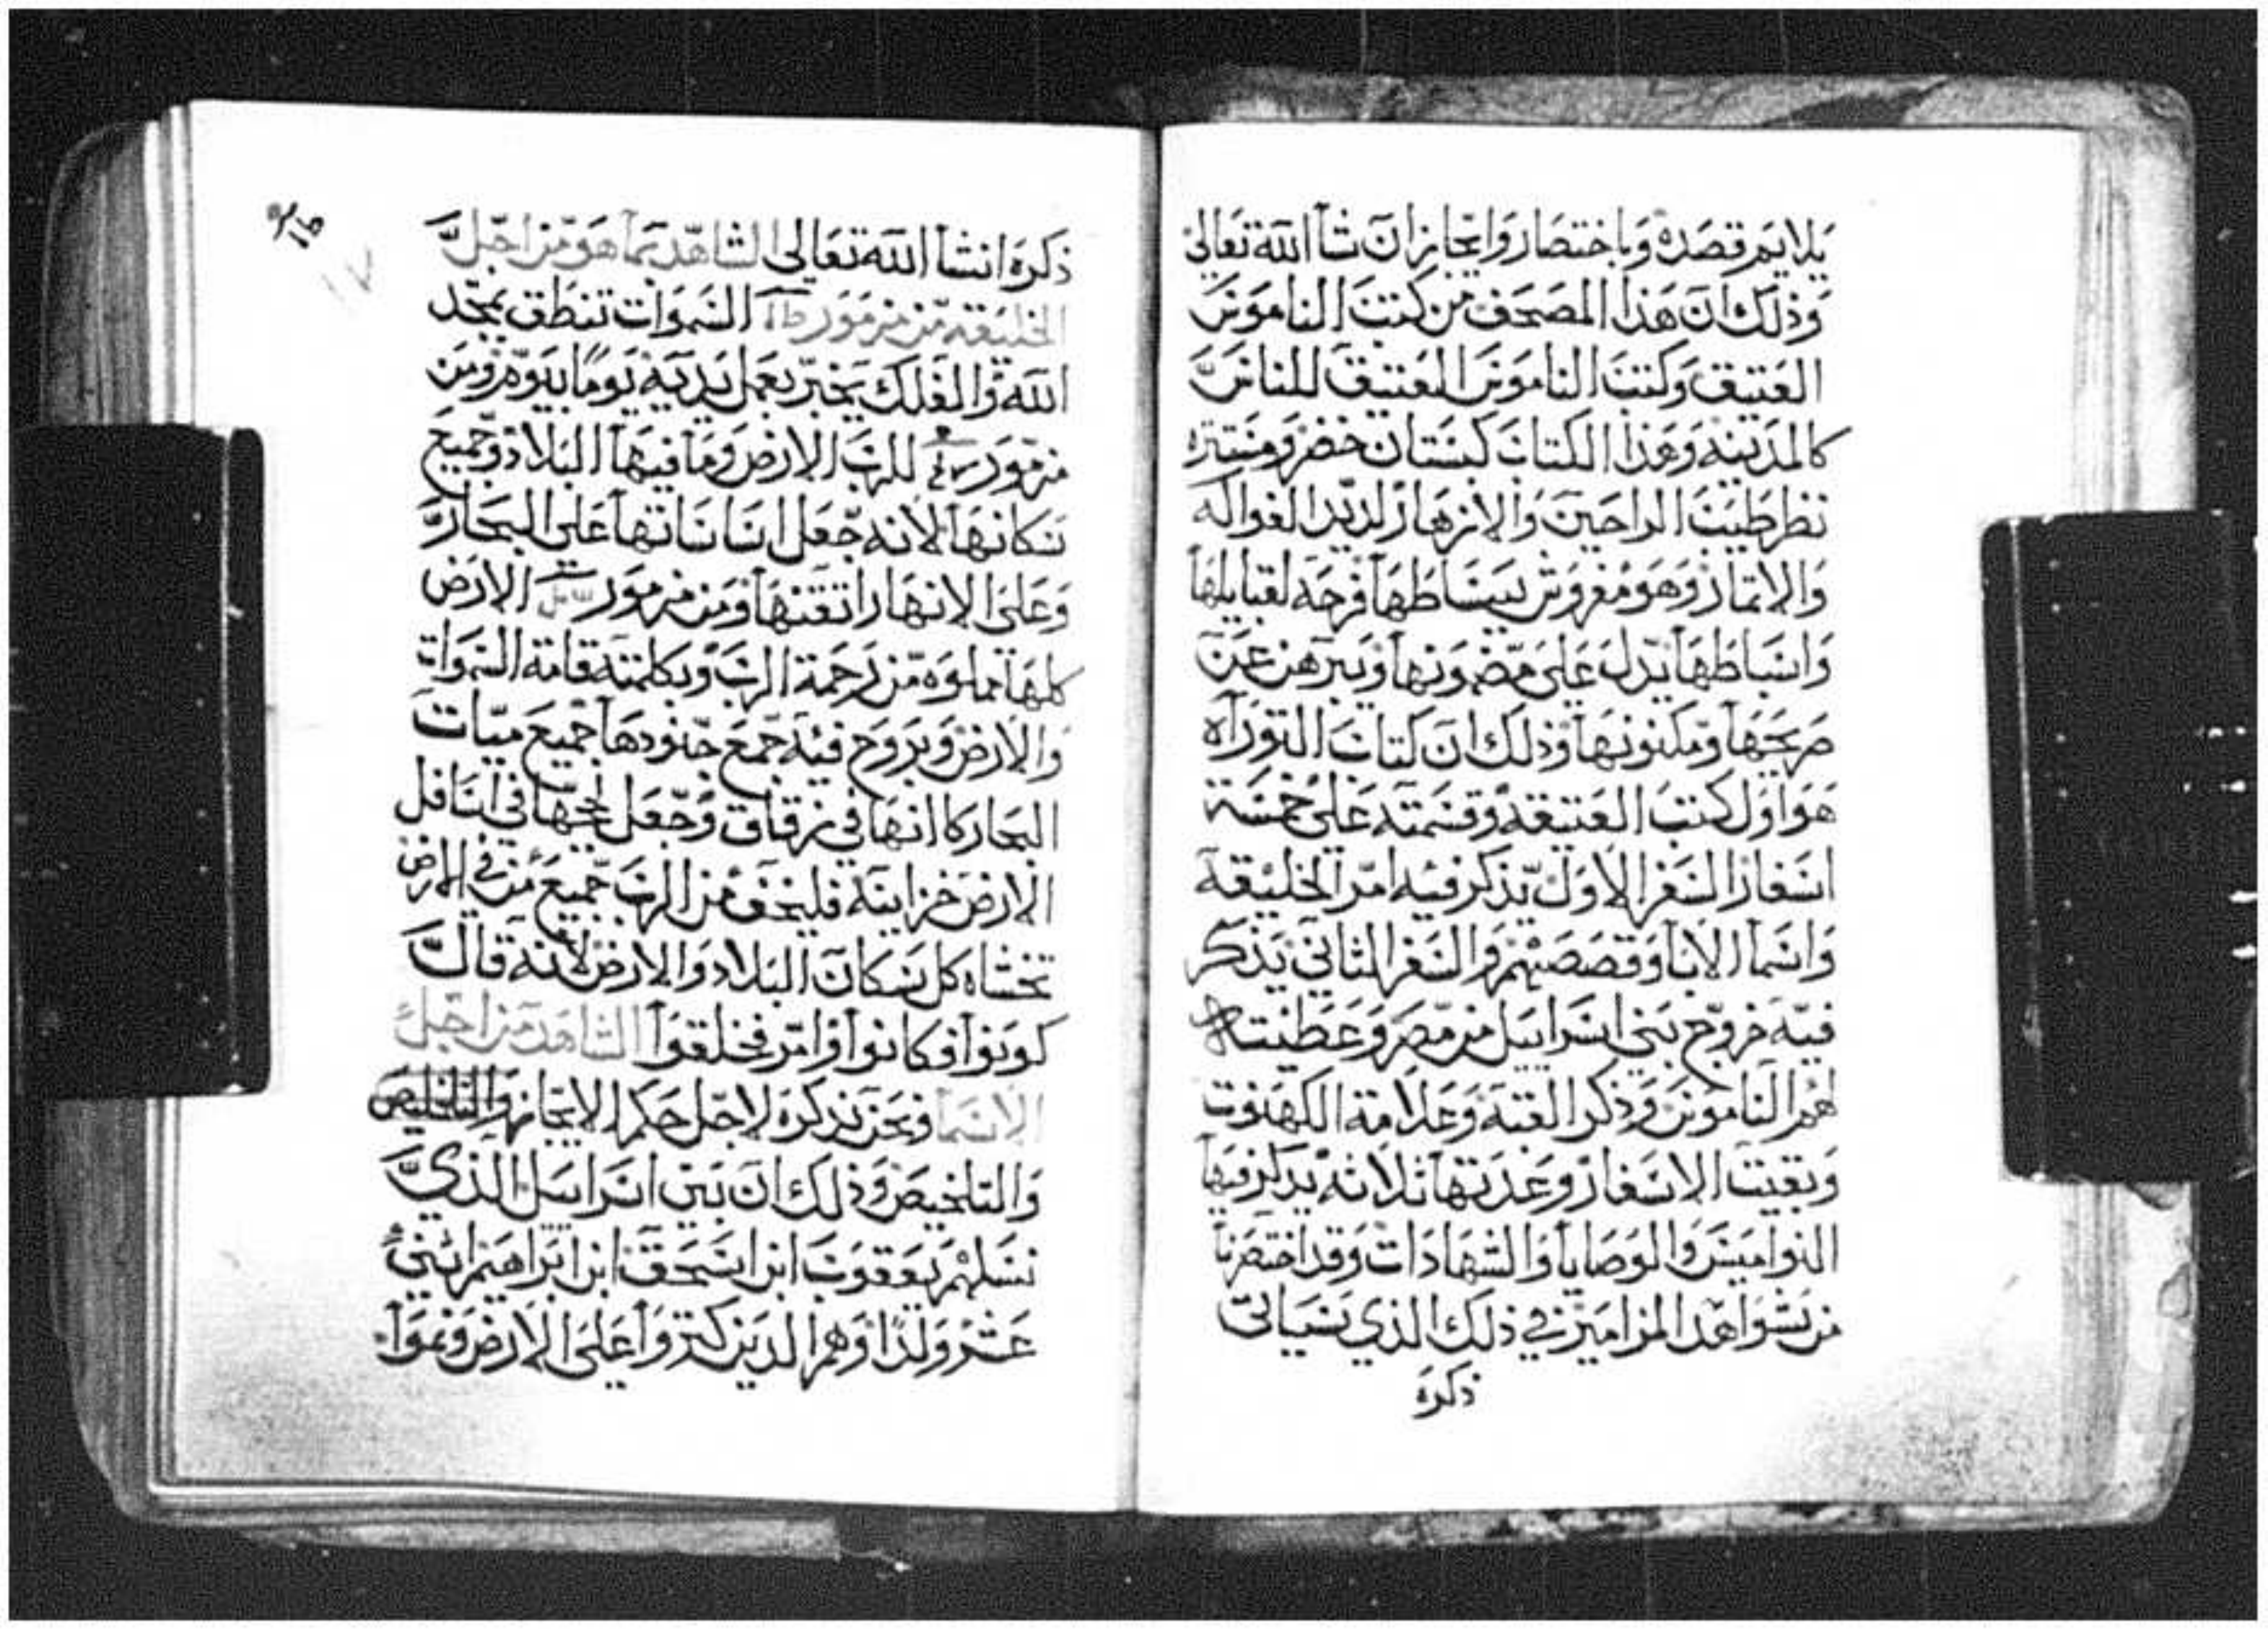 يلايم قصده وباختصار وايجاز ان شآ الله تعالى
وذلك ان هذا المصحف من كتب الناموس
العتيق وكتب الناموس العتيق للناس
كالمدينه وهذا الكتاب كبستان خضر ومنتزه
نظر طيب الراحين والازهار لديد الفواكه
والاتمار وهو مفروش ببساطها فرجه لقبايلها
وانبساطها يدل علي مضمونها ويبرهن عن
صريحها ومكنونها وذلك ان كتاب التوراه
هو اول كتب العتيقه وقسمته علي خمسة
اسفار السفر الاول يذكر فيه امر الخليقة
واسما الابا وقصصهم والسفر الثاني يذكر
فيه خروج بني اسراييل من مصر وعطيت
لهم الناموس وذكر القبه وعلامة الكهنوت
وبقيت الاسفار وعدتها ثلاثه يدكر فيها
النواميس والوصايا والشهادات وقد اختصرنا
من شواهد المزامير في ذلك الذي سياتي
ذكره
ذكره انشا الله تعالي الشاهد بما هو من اجل
الخليقه من مزمور السموات تنطق بمجد
الله والفلك يخبر بعمل يديه يوما بيوم ومن
مزمور للرب الارض وما فيها البلاد وجميع
سكانها لانه جعل اساساتها علي البحار
وعلي الانهار اتقنها ومن مزمور الارض
كلها مملوه من رحمة الرب وبكلمته قامة السموات
والارض وبروح فيه جمع جنودها جميع ميات
البحار كانها في زقاق وجعل لججها في اسافل
الارض خزاينه فليخف من الرب جميع من في الارض
تخشاه كل سكان البلاد والارض لانه قال
كونوا فكانوا وامر فخلقوا الشاهد من اجل
الاسما ونحن ندكره لاجل حكم الايجاز والتلخيص
والتلخيص وذلك ان بني اسراييل الذي
نسلهم يعقوب ابن اسحق ابن ابراهيم اثني
عشر ولدا وهم الدين كتروا علي الارض ونموا
١٧